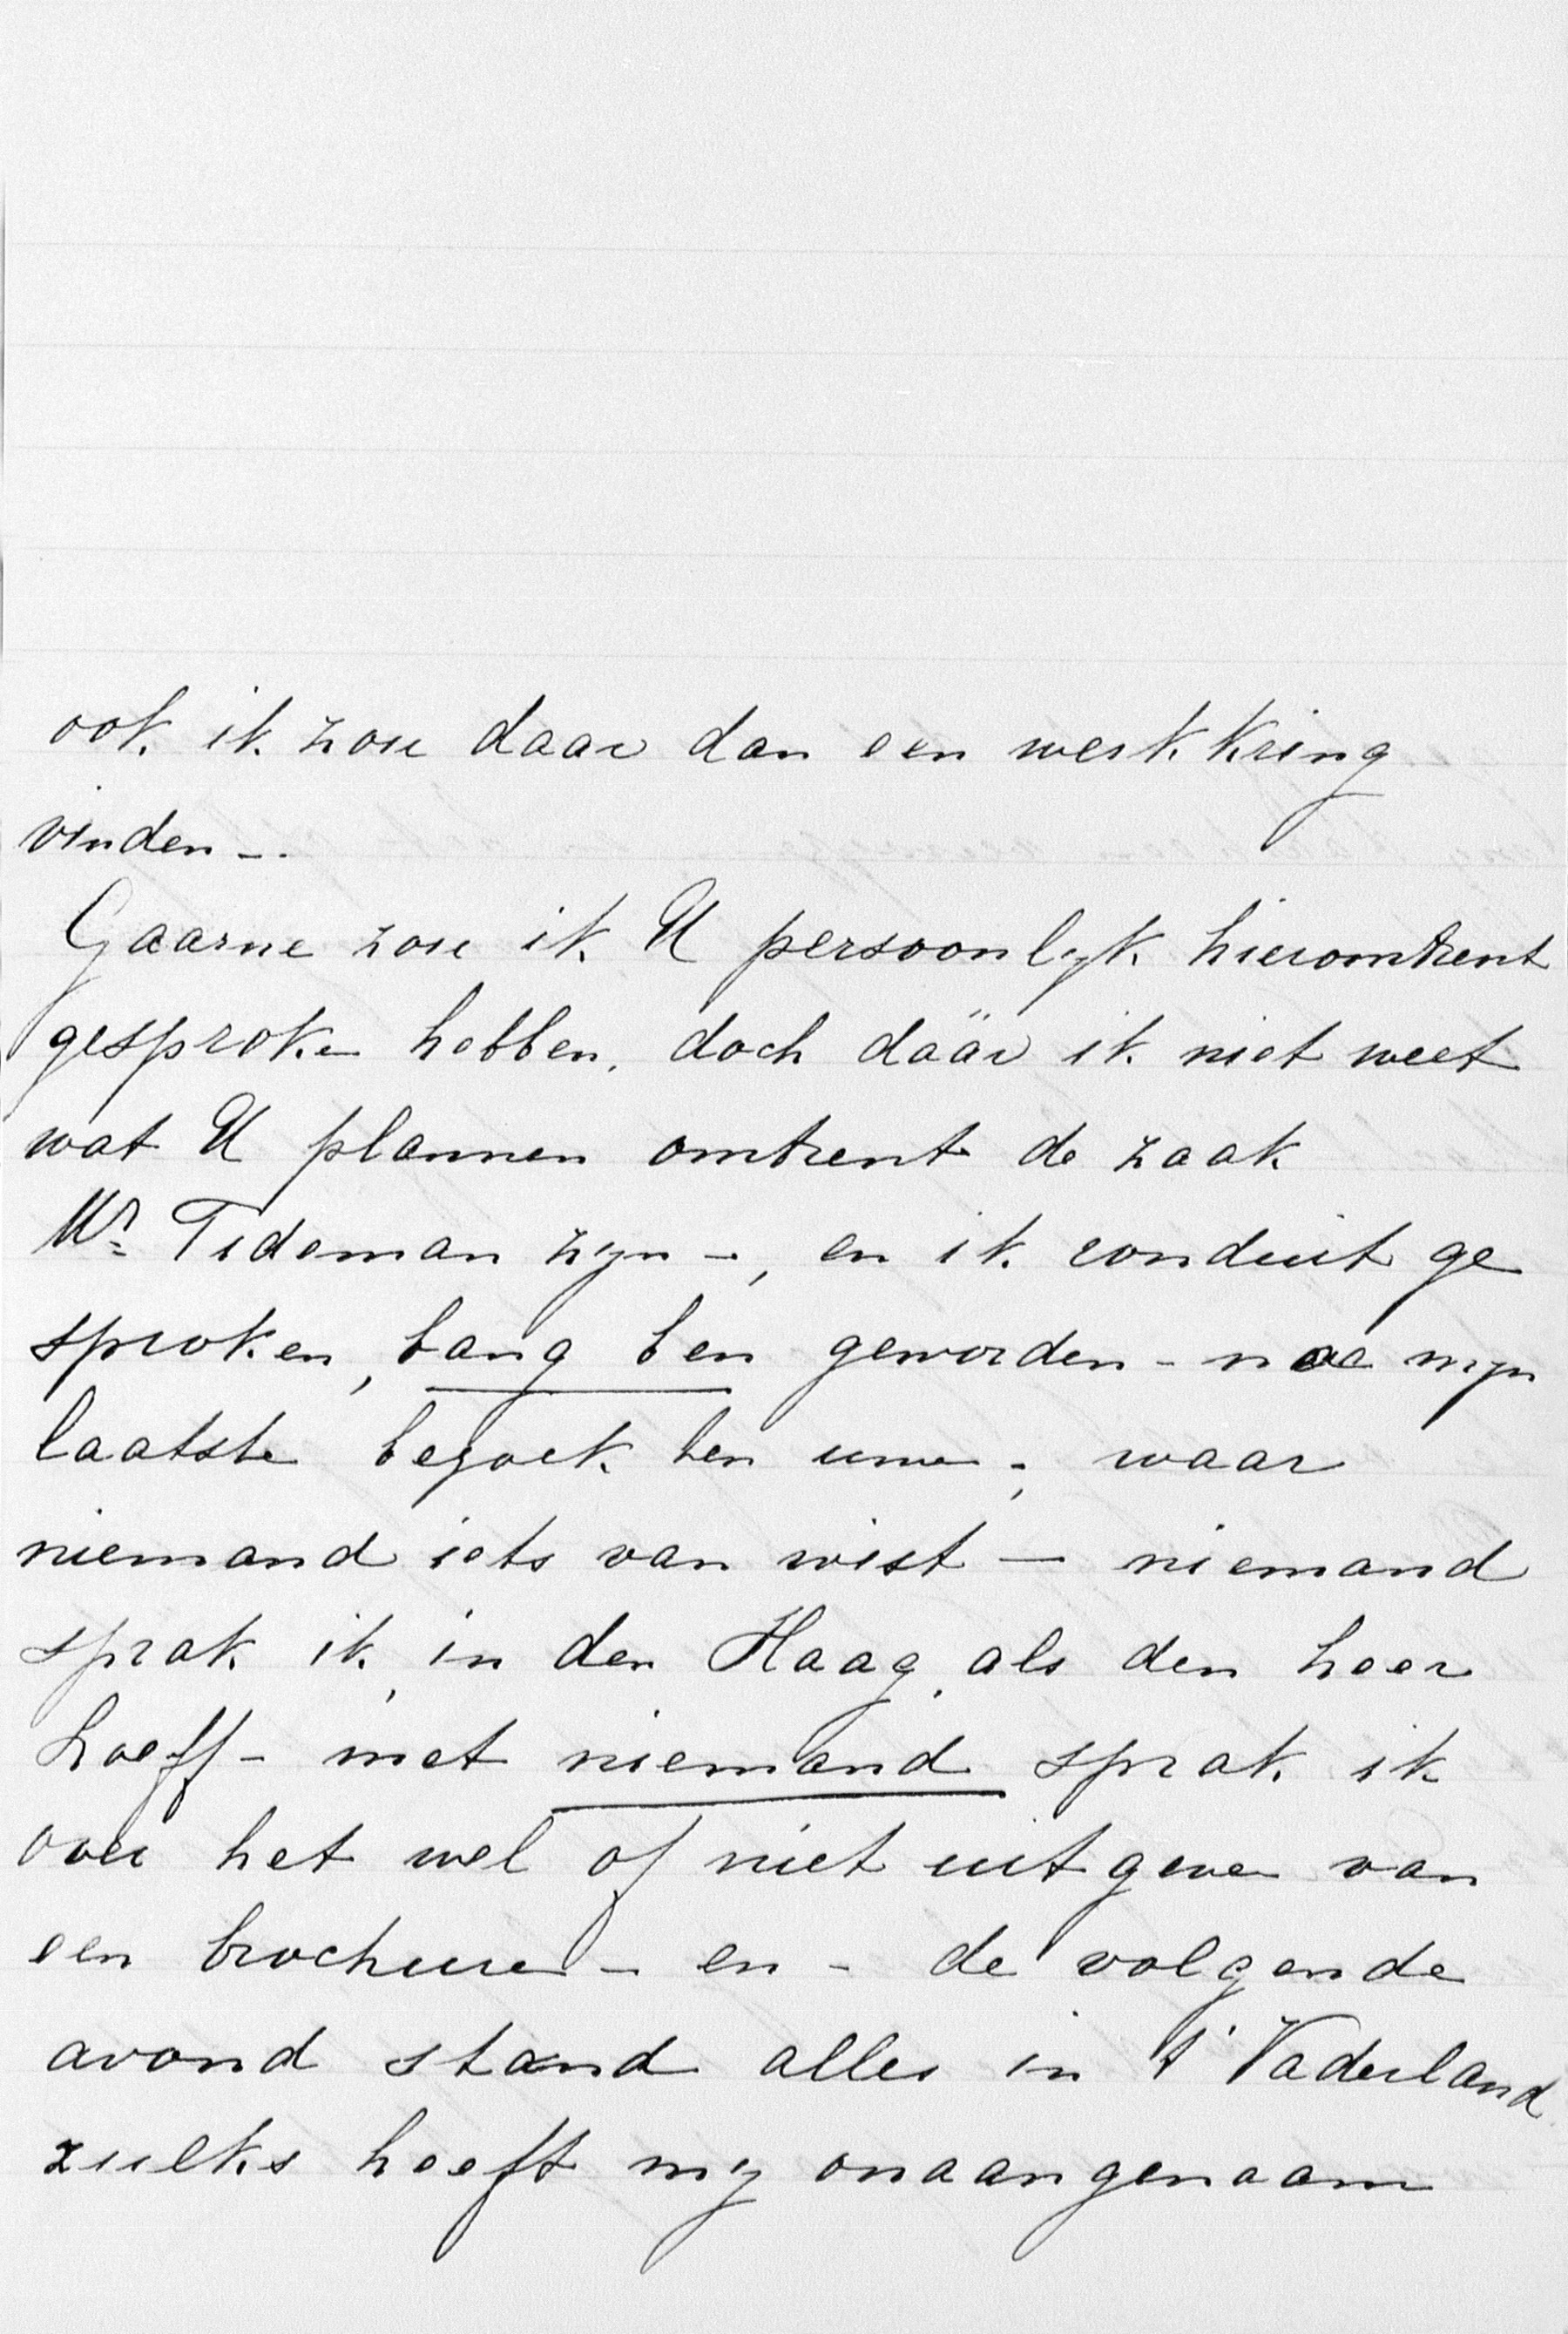 ook ik zou daar dan een werkkring
vinden -.
Gaarne zou ik U persoonlyk hieromtrent
gesproken hebben, doch daär ik niet weet
wat U plannen omtrent de zaak
Mr Tideman zyn -, en ik ronduit ge
sproken, bang ben geworden - na myn
laatste bezoek ten uwe -, waar
niemand iets van wist — niemand
sprak ik, in den Haag, als den heer
Loeff - met niemand sprak ik
over het wel of niet uitgeven van
een brochure - en - de volgende
avond stond alles in 't Vaderland
zulks heeft my onaangenaam